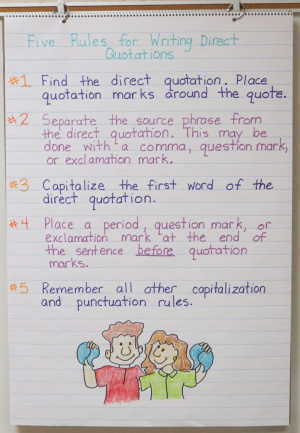 Five Rules for Writing Direct
Quotations
#1 Find the direct quotation. Place
quotation marks around the quote.
#2 Separate the source phrase from
the direct quotation. This may be
done with a comma, question mark,
or exclamation mark.
#3 Capitalize the first word of the
direct quotation.
#4 Place a period, question mark, or
exclamation mark at the end of
the sentence before quotation
marks.
#5 Remember all other capitalization
and punctuation rules.